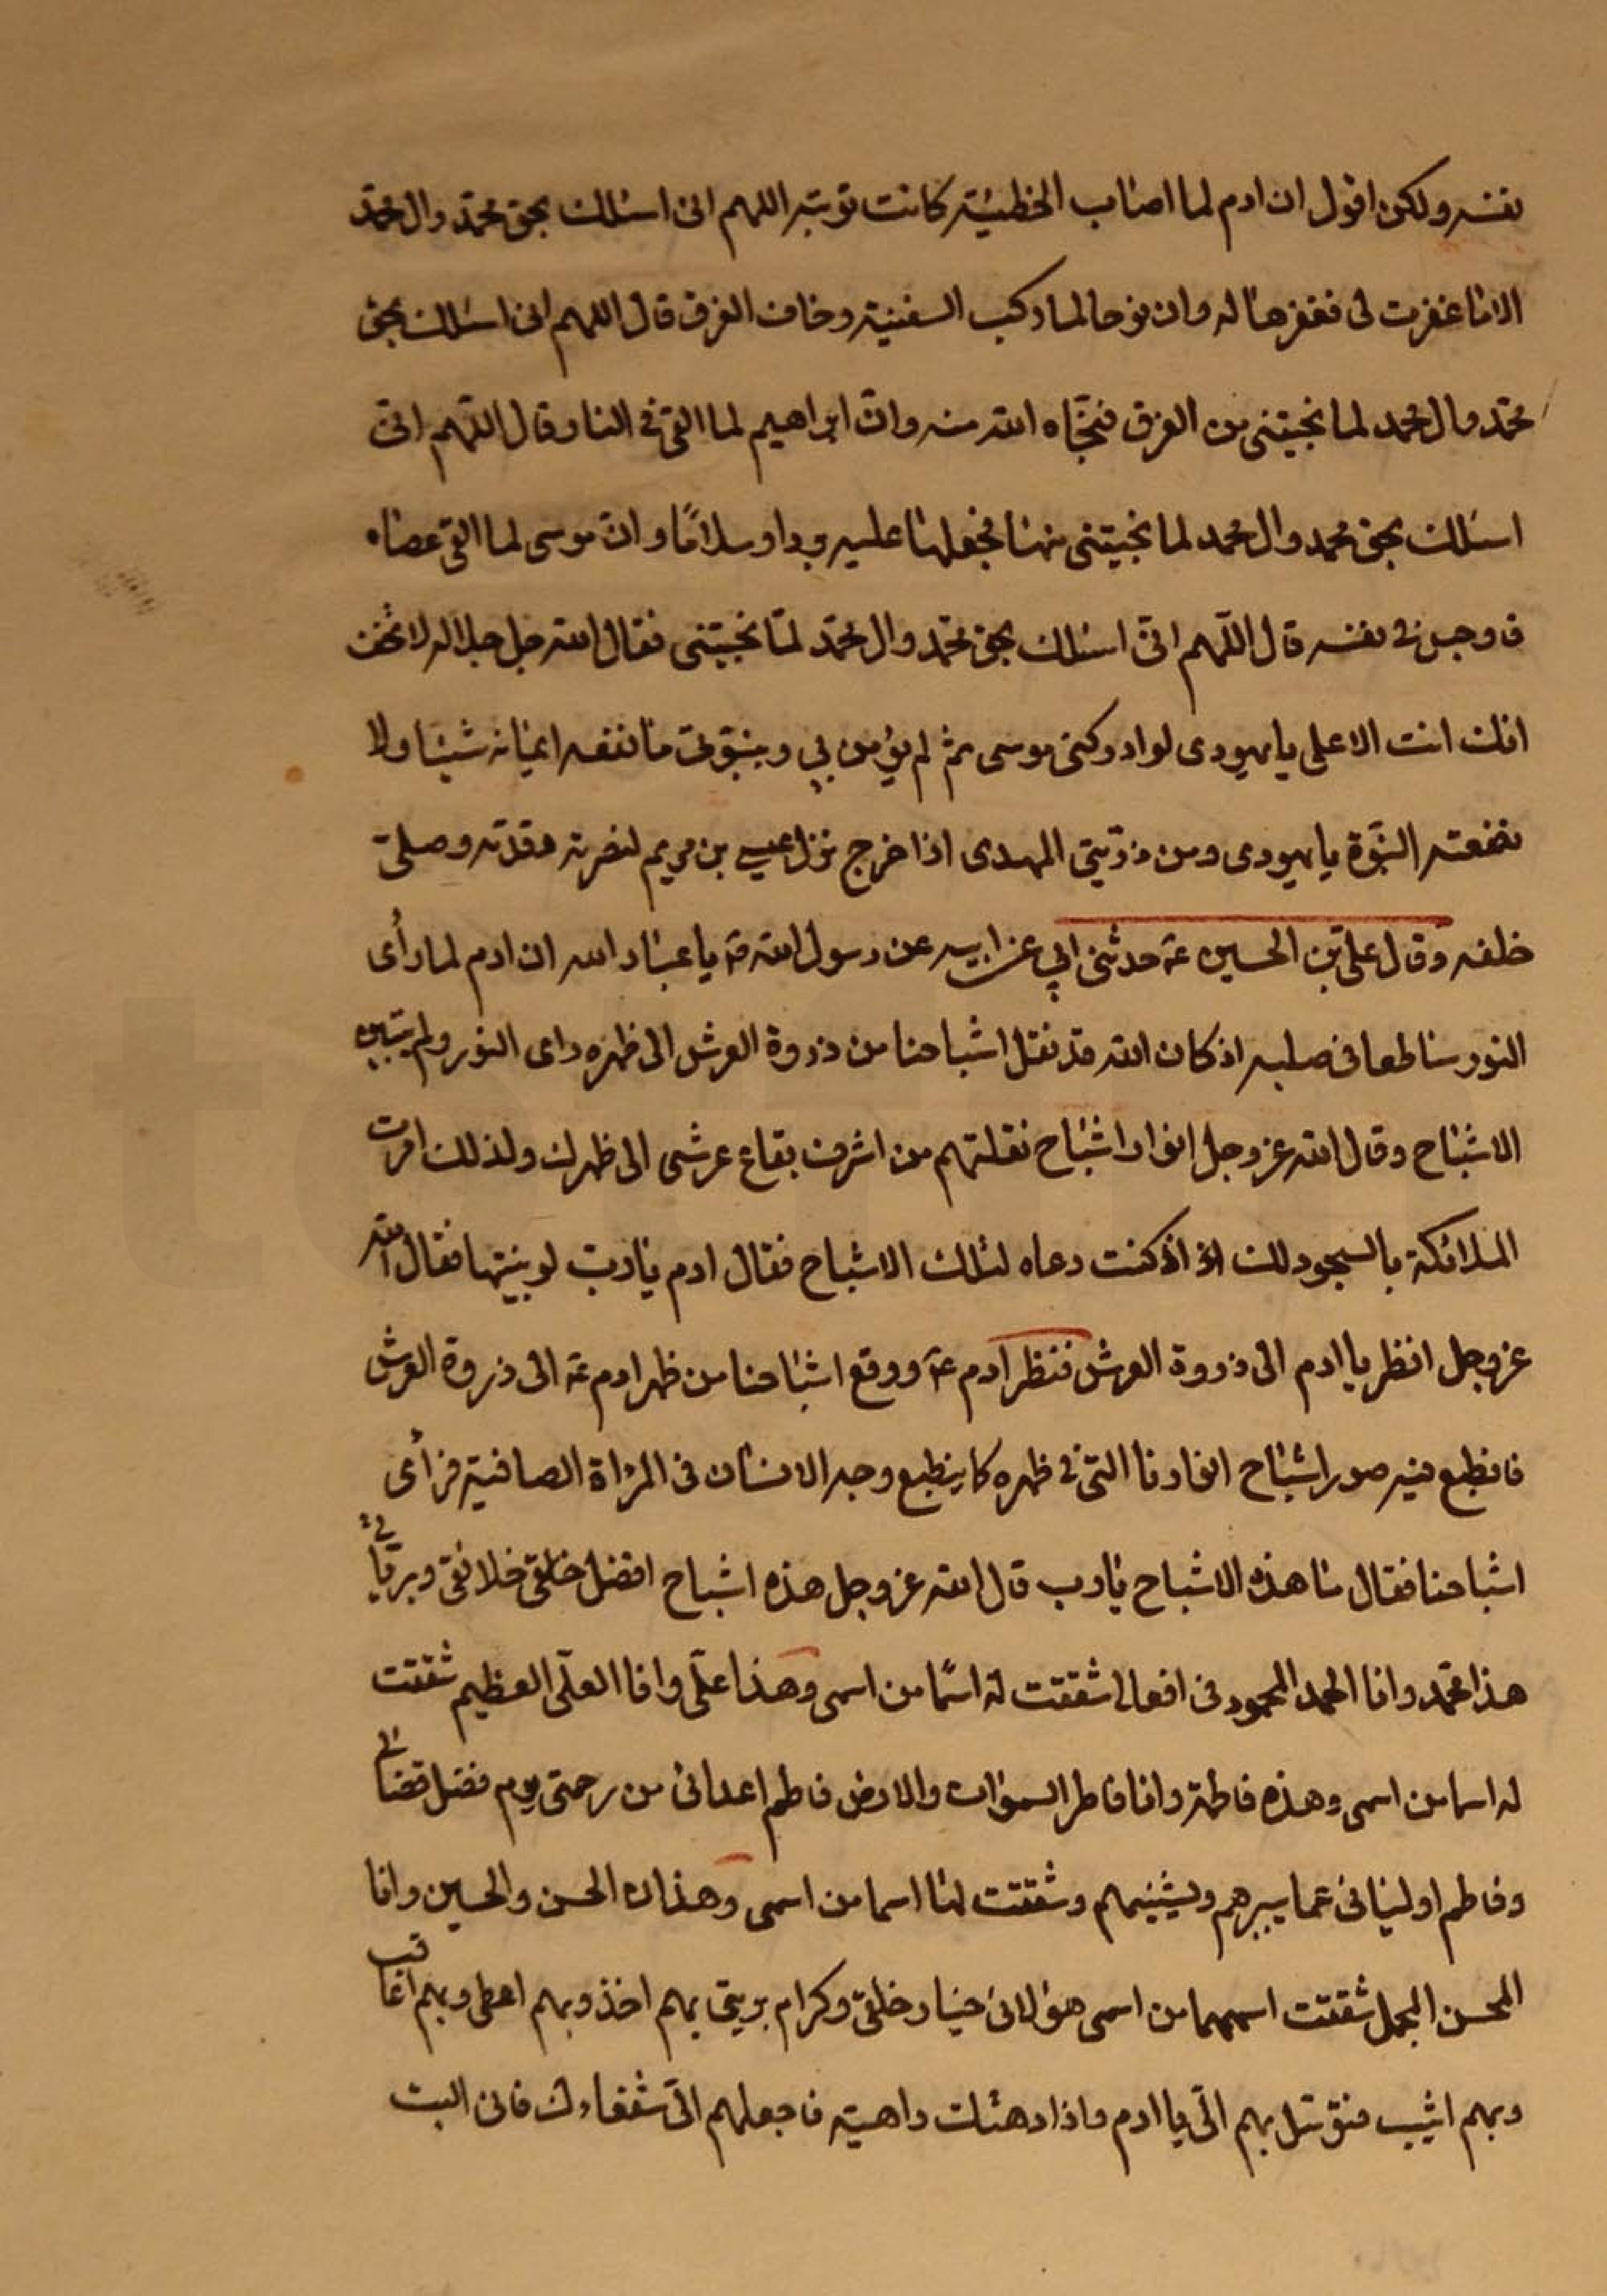 نفسه ولكن اقول ان ادم لما اصاب الخطيئة كانت توبته اللهم انى اسئلك بحق محمّد وال محمّد
الا ما غفرت لى فغفرها له وان نوحا لما ركب السفينة وخاف الغرق قال اللهم انى اسئلك بحق
محمّد وال محمد لما نجيتنى من الغرق فنجّاه الله منه وانّ ابراهيم لما القى فى النار قال اللّهم انّى
اسئلك بحق محمد وال محمد لما نجيتنى منها فجعلها عليه بردا وسلامًا وانّ موسى لما القى عصاه
فاوجس فى نفسه قال اللّهم انّى اسئلك بحق محمّد وال محمّد لمّا نجيتنى فقال الله جل جلاله لا تخف
انك انت الاعلى يا يهودى لو ادركنى موسى ثم لم يؤمن بي وبنبوّتى ما نفعه ايمانه شيئا ولا
نفعته النبوّة يا يهودى ومن ذرّيتى المهدى اذا خرج نزل عيسى بن مريم لنصرته فقدّمه وصلىّ
خلفه وقال علىّ بن الحسين عه حدثنى ابي عن ابيه عن رسول الله ص يا عباد الله ان ادم لما رأى
النور ساطعا فى صلبه اذ كان الله قد نقل اشباحنا من ذروة العرش الى ظهره راى النور ولم يتبين
الاشباح وقال الله عز وجل انوار اشباح نقلتهم من اشرف بقاع عرشى الى ظهرك ولذلك امرت
الملائكة بالسجود لك اذ كنت دعاه لتلك الاشباح فقال ادم يا ربّ لو بينتها فقال الله
عز وجل انظر يا ادم الى ذروة العرش فنظر ادم عه ووقع اشباحنا من ظهر ادم عه الى ذروة العرش
فانطبع فيه صور اشباح انوارنا التى فى ظهره كما ينطبع وجه الانسان فى المرءاة الصافية فرأى
اشباحنا فقال ما هذه الاشباح يا رب قال الله عز وجل هذه اشباح افضل خلقى خلائقى وبرياتى
هذا محمّد وانا الحمد المحمود فى افعالى شققت له اسمًا من اسمى وهذا علّى وانا العلّى العظيم شققت
له اسما من اسمى وهذه فاطمة وانا فاطر السموات والارض فاطم اعدائى من رحمتى يوم فصل قضائى
وفاطم اوليائى عما يبيرهم ويشينهم وشققت لها اسما من اسمى وهذان الحسن والحسين وانا
المحسن المجمل شققت اسمهما من اسمى هؤلائ خيار خلقى وكرام بريتى بهم اخذ وبهم اعطى وبهم اعاقب
وبهم اثيب فتوّسل بهم الىّ يا ادم واذا دهتك داهية فاجعلهم الىّ شفعاءك فانى اليت